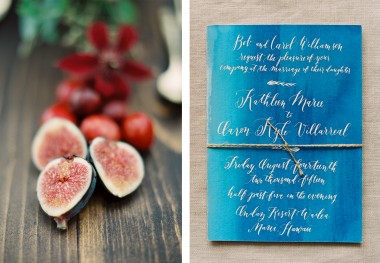 Bob and Carol Williamson
request the pleasure of your
company at the marriage of their daughter
Kathleen Marie
to
Aaron Kyle Villarreal
Friday August fourteenth
two thousand fifteen
half past five in the evening
Andaz Resort Wailea
Maui, Hawaii